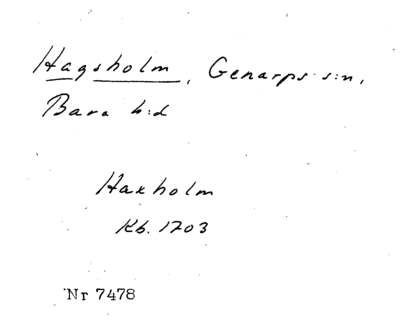 Hagsholm, Genarps s:n,
Bara h:d
Haxholm
Kb. 1703
Nr 7478